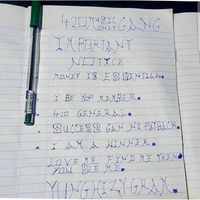 420 MUSIC GANG
ONLY
IMPORTANT
NOTICE
MONEY IS ESSENTICAL.
I BE YOP MEMBER.
420 GENERAL.
SUCCESS GAN NI PAYBACK.
I AM A WINNER.
LOVE ME FIND ME WHEN
YOU SEE ME.
YUNGHIZYGRAM.